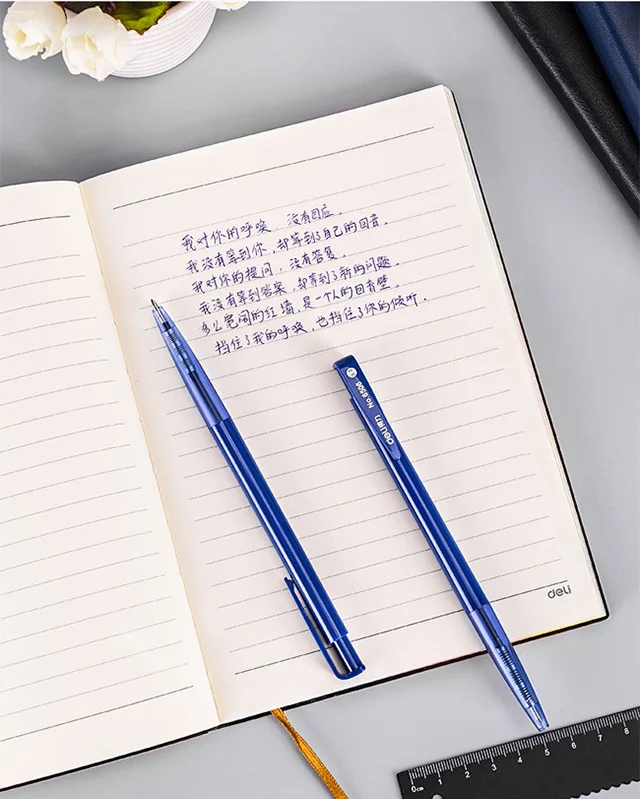 我对你的呼唤 没有回应.
我没有等到你,却等到了自己的回音.
我对你的提问,没有答复.
我没有等到答案,却等到了新的问题.
多么宽阔的红墙,是一个人的回音壁.
挡住了我的呼唤,也挡住了你的倾听.
No.6506
deli
deli
0cm 1 2 3 4 5 6 7 8